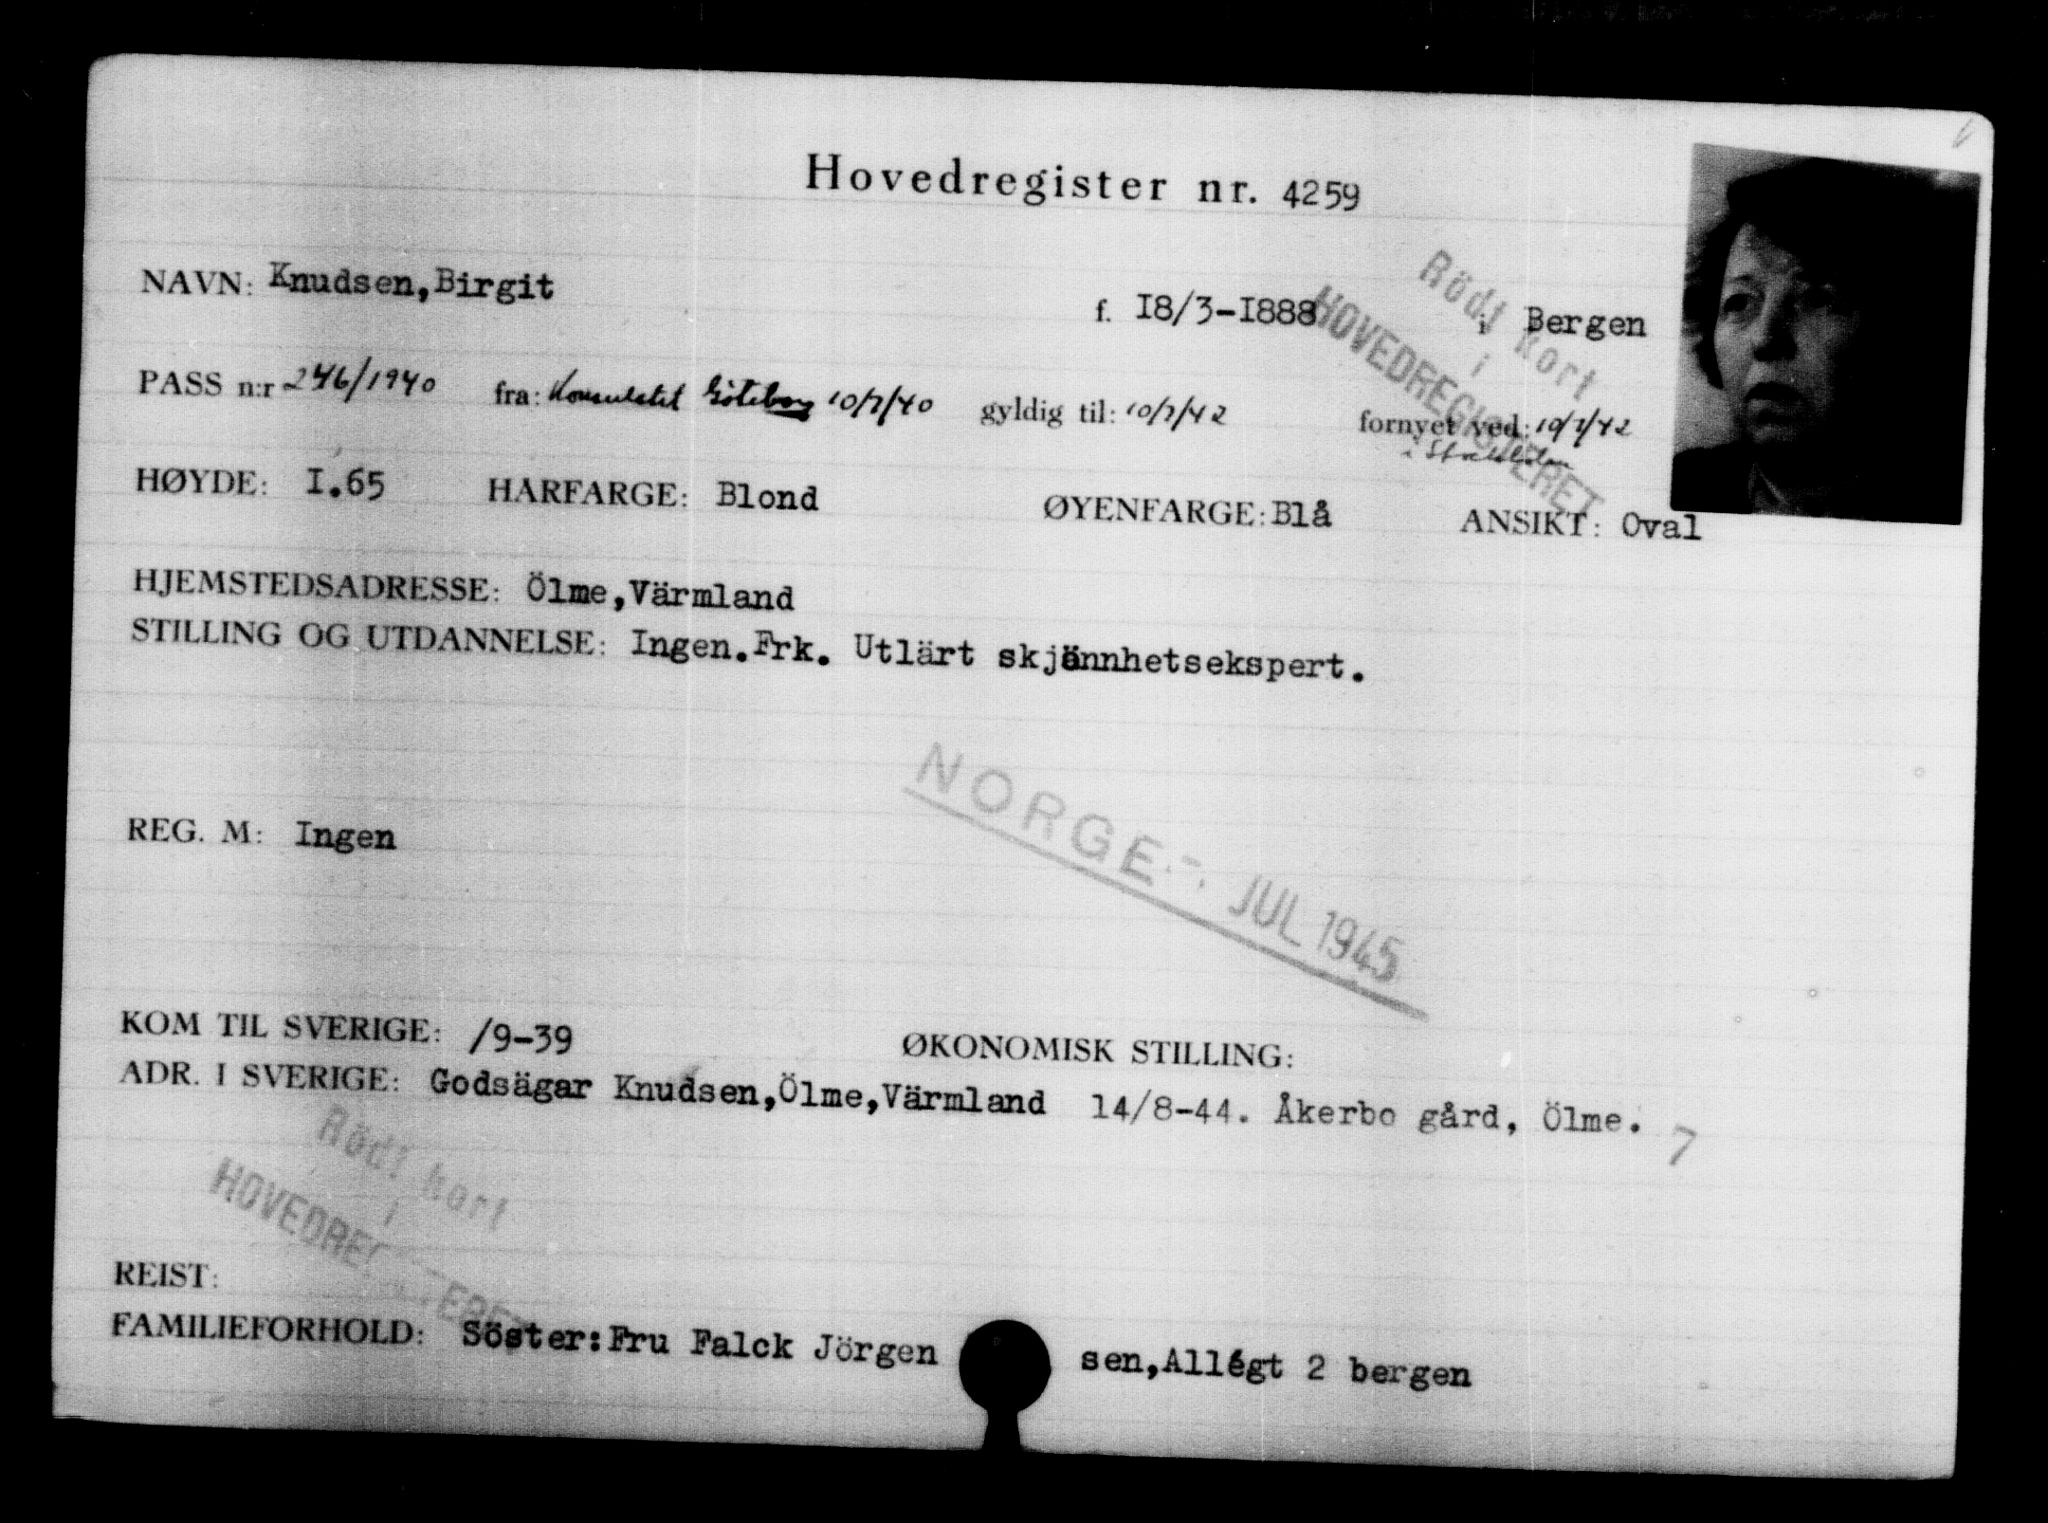 Hovedregister nr. 4259
NAVN: Knudsen,Birgit f. I8/3-I888 i Bergen
Rödt kort
i
HOVEDREGISTERET
PASS n:r 246/1940 fra: Konsulatet Göteborg 10/7/40 gyldig til: 10/7/42 fornyet ved: 10/7/42
i Stockholm
HØYDE: I.65 HARFARGE: Blond ØYENFARGE: Blå ANSIKT: Oval
HJEMSTEDSADRESSE: Ölme,Värmland
STILLING OG UTDANNELSE: Ingen.Frk. Utlärt skjönnhetsekspert.
NORGE.- JUL 1945
REG. M: Ingen
KOM TIL SVERIGE: /9-39 ØKONOMISK STILLING:
ADR. I SVERIGE: Godsägar Knudsen,Ölme,Värmland 14/8-44. Åkerbo gård, Ölme. 7
Rödt kort
i
HOVEDREGISTERET
REIST:
FAMILIEFORHOLD: Söster:Fru Falck Jörgen sen,Allégt 2 bergen